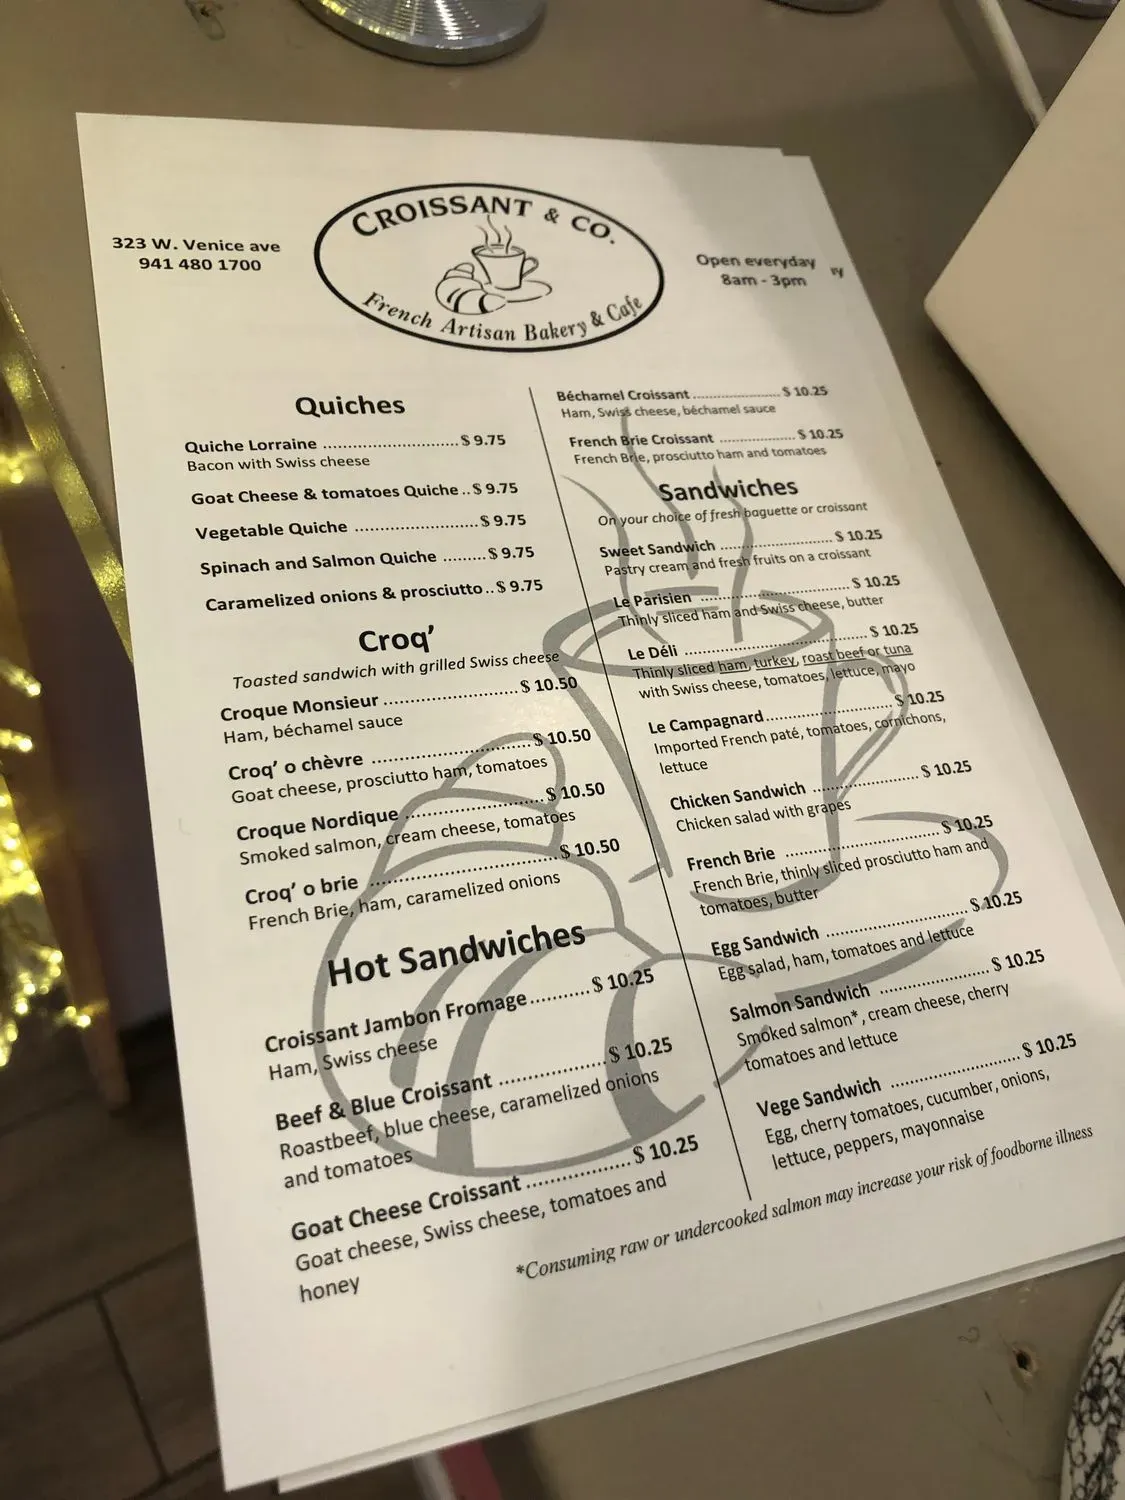 323 W. Venice ave
941 480 1700
CROISSANT & CO.
French Artisan Bakery & Cafe
Open everyday
8am - 3pm
ry
Quiches
Quiche Lorraine ..........................$ 9.75
Bacon with Swiss cheese
Goat Cheese & tomatoes Quiche..$ 9.75
Vegetable Quiche .......................$ 9.75
Spinach and Salmon Quiche ........$ 9.75
Caramelized onions & prosciutto..$ 9.75
Croq’
Toasted sandwich with grilled Swiss cheese
Croque Monsieur ......................$ 10.50
Ham, béchamel sauce
Croq’ o chèvre ..........................$ 10.50
Goat cheese, prosciutto ham, tomatoes
Croque Nordique ......................$ 10.50
Smoked salmon, cream cheese, tomatoes
Croq’ o brie ..............................$ 10.50
French Brie, ham, caramelized onions
Hot Sandwiches
Croissant Jambon Fromage...........$ 10.25
Ham, Swiss cheese
Beef & Blue Croissant .................$ 10.25
Roastbeef, blue cheese, caramelized onions
and tomatoes
Goat Cheese Croissant ................$ 10.25
Goat cheese, Swiss cheese, tomatoes and
honey
Béchamel Croissant ........................$ 10.25
Ham, Swiss cheese, béchamel sauce
French Brie Croissant ....................$ 10.25
French Brie, prosciutto ham and tomatoes
Sandwiches
On your choice of fresh baguette or croissant
Sweet Sandwich ..........................$ 10.25
Pastry cream and fresh fruits on a croissant
Le Parisien ..................................$ 10.25
Thinly sliced ham and Swiss cheese, butter
Le Déli ........................................$ 10.25
Thinly sliced ham, turkey, roast beef or tuna
with Swiss cheese, tomatoes, lettuce, mayo
Le Campagnard............................$ 10.25
Imported French paté, tomatoes, cornichons,
lettuce
Chicken Sandwich .......................$ 10.25
Chicken salad with grapes
French Brie .................................$ 10.25
French Brie, thinly sliced prosciutto ham and
tomatoes, butter
Egg Sandwich ..............................$ 10.25
Egg salad, ham, tomatoes and lettuce
Salmon Sandwich ........................$ 10.25
Smoked salmon* , cream cheese, cherry
tomatoes and lettuce
Vege Sandwich ............................$ 10.25
Egg, cherry tomatoes, cucumber, onions,
lettuce, peppers, mayonnaise
*Consuming raw or undercooked salmon may increase your risk of foodborne illness